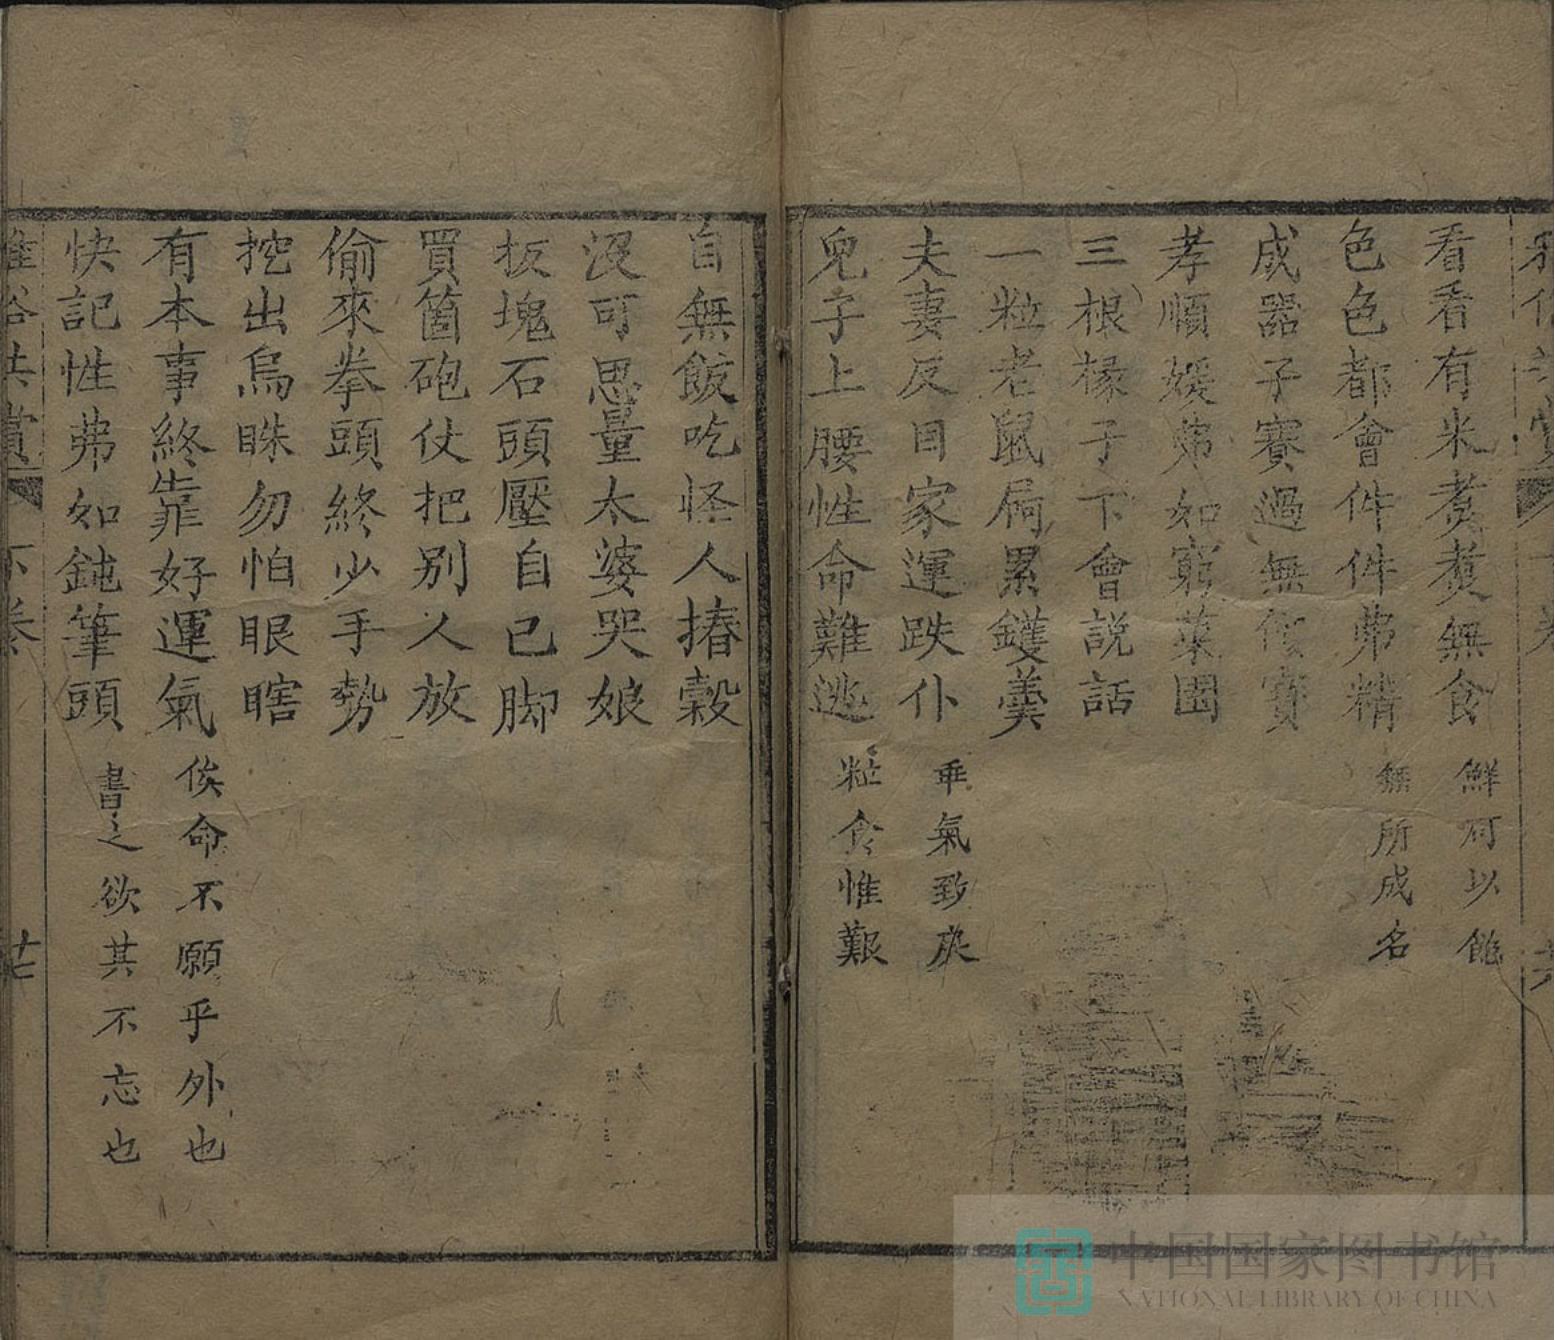 看看有米煮煮無食 鮮可以飽
色色都會件件弗精 無所成名
成器子賽過無價寶
孝順媛弗如窮菜園
三根椽子下會説話
一粒老鼠屙累鑊羹
夫妻反目家運跌仆 乖氣致戾
兒子上腰性命難逃 粒食惟艱
自無飯吃怪人摏穀
沒可思量太婆哭娘
扳塊石頭壓自己脚
買箇砲仗把别人放
偷來拳頭終少手勢
挖出烏眛勿怕眼瞎
有本事終靠好運氣 俟命不願乎外也
快記性弗如鈍筆頭 書之欲其不忘也
雅俗共賞 下卷 廿七
中国国家图书馆
NATIONAL LIBRARY OF CHINA